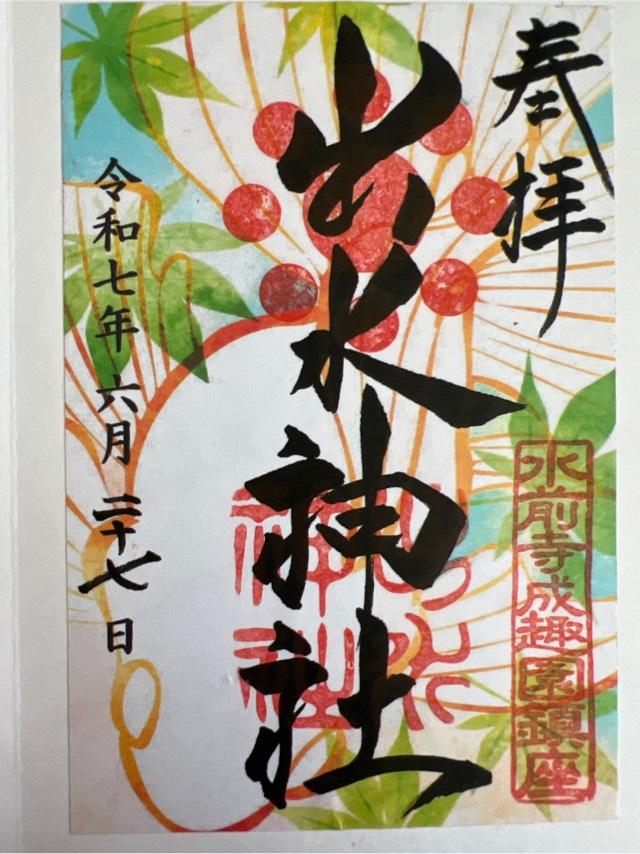 奉拝
水前寺成趣園鎮座
出水神社
出水神社
令和七年六月二十七日